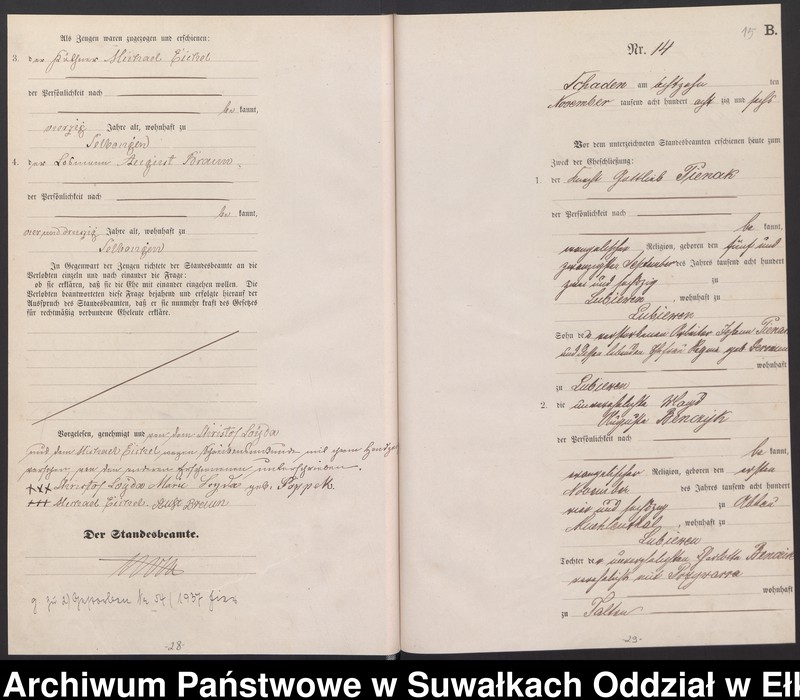 Als Zeugen waren zugezogen und erschienen:
3. der Käthner Michael Eichel
der Persönlichkeit nach
be kannt,
vierzig Jahre alt, wohnhaft zu
Selbongen
4. der Losmann August Braun,
der Persönlichkeit nach
be kannt,
vier und dreizig Jahre alt, wohnhaft zu
Selbongen
In Gegenwart der Zeugen richtete der Standesbeamte an die
Verlobten einzeln und nach einander die Frage:
ob sie erklären, daß sie die Ehe mit einander eingehen wollen. Die
Verlobten beantworteten diese Frage bejahend und erfolgte hierauf der
Ausspruch des Standesbeamten, daß er sie nunmehr kraft des Gesetzes
für rechtmäßig verbundene Eheleute erkläre.
Vorgelesen, genehmigt und von dem Christof Loyda
und dem Michael Eichel wegen Schreibensunkunde mit ihrem Handzei
versehen von den anderen Erschienenen unterschrieben.
+++ Christof Loyda Marie Loyda geb. Poppek.
+++ Michael Eichel. Aust Braun
Der Standesbeamte.
g zu 2) Gestorben Nr. 54/1937
-28-
15 B.
Nr. 14
Schaden am achtzehn ten
November tausend acht hundert acht zig und sechs
Vor dem unterzeichneten Standesbeamten erschienen heute zum
Zweck der Eheschließung:
1. der Knecht Gottlieb Pienak
der Persönlichkeit nach
be kannt,
evangelischer Religion, geboren den fünf und
zwanzigsten September des Jahres tausend acht hundert
zwei und sechszig zu
Lubiewen, wohnhaft zu
Lubiewen
Sohn des verstorbenen Arbeiter Johann Pienak
und dessen lebenden Ehefrau Regine geb.
wohnhaft
zu Lubiewen
2. die unverehelichte Magd
Auguste Benczyk
der Persönlichkeit nach
be kannt,
evangelischer Religion, geboren den ersten
November des Jahres tausend acht hundert
vier und sechszig zu Abbau
Muehlenthal, wohnhaft zu
Lubiewen
Tochter der unverehelichten Charlotte
verehelicht mit
wohnhaft
zu Talten
-29-
Archiwum Państwowe w Suwałkach Oddział w Eł